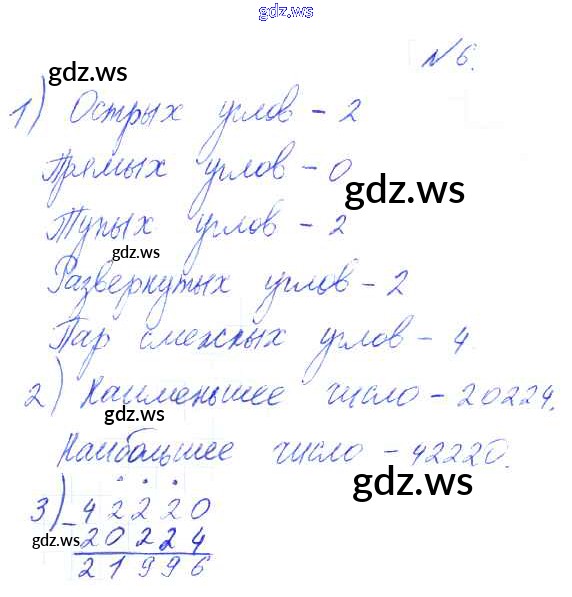 gdz.ws
№6.
gdz.ws
1) Острых углов - 2
Прямых углов - 0
gdz.ws
Тупых углов - 2
gdz.ws
Развернутых углов - 2
Пар смежных углов - 4
2) Наименьшее число - 20224.
gdz.ws
Наибольшее число - 42220.
gdz.ws
3) - 42220
gdz.ws 20224
21996